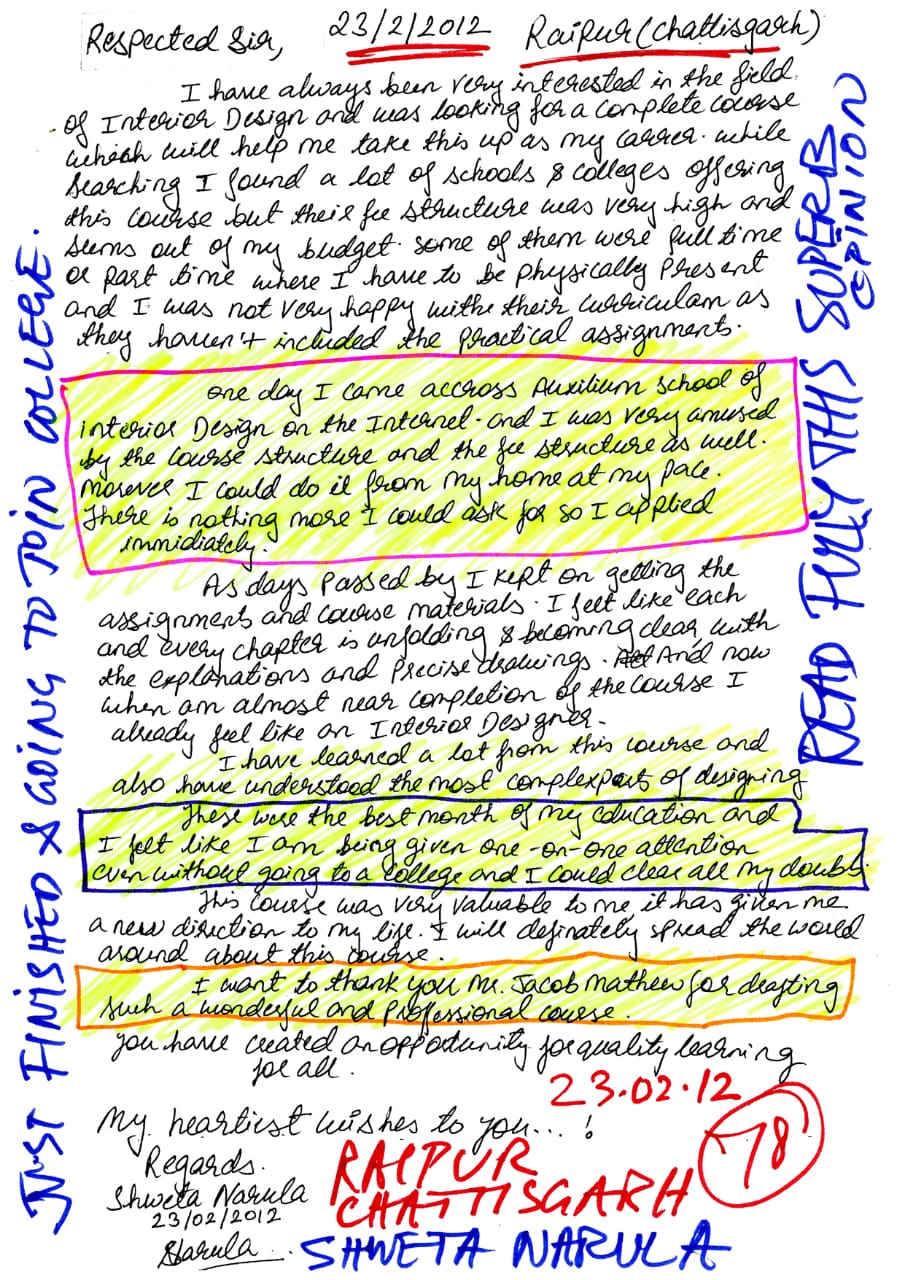 Respected Sir, 23/2/2012 Raipur (Chattisgarh)
I have always been very interested in the field
of Interior Design and was looking for a complete course
which will help me take this up as my carrer. while
searching I found a lot of schools & colleges offering
this course but their fee structure was very high and
seems out of my budget. some of them were full time
or part time where I have to be physically present
and I was not very happy withe their curriculam as
they haven't included the practical assignments.
One day I came accross Auxilium School of
interior Design on the Internet. and I was very amused
by the course structure and the fee structure as well.
morever I could do it from my home at my pace.
There is nothing more I could ask for so I applied
immidiately.
As days passed by I kept on getting the
assignment and course materials. I felt like each
and every chapter is unfolding & becoming clear, with
the explanations and precise drawings. And now
when am almost near completion of the course I
already feel like an Interior Designer.
I have learned a lot from this course and
also have understood the most complex parts of designing
These were the best month of my education and
I felt like I am being given one-on-one attention
even without going to a college and I could clear all my doubts.
This course was very valuable to me it has given me
a new direction to my life. I will definately spread the world
around about this course.
I want to thank you Mr. Jacob Mathew for drafting
such a wonderful and Professional course.
you have created an opportunity for quality learning
for all.
23.02.12
My heartiest wishes to you...!
78
Regards.
Shweta Narula
23/02/2012
SNarula
RAIPUR
CHATTISGARH
SHWETA NARULA
JUST FINISHED & GOING TO JOIN COLLEGE.
READ FULLY THIS SUPERB
OPINION